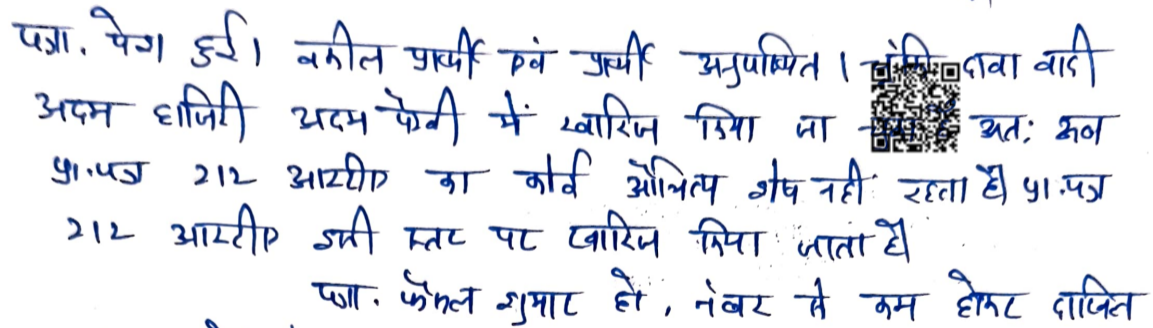 पत्रा. पेश हुई। वकील प्रार्थी एवं प्रार्थी अनुपस्थित। चूंकि दावा वादी
अदम हाजिरी अदम पैरवी में खारिज किया जा चुका है अतः अब
प्रा.पत्र 212 आरटीए का कोई औचित्य शेष नहीं रहता है। प्रा.पत्र
212 आरटीए इसी स्तर पर खारिज किया जाता है।
पत्रा. फैसल शुमार हो, नंबर से कम होकर दाखिल